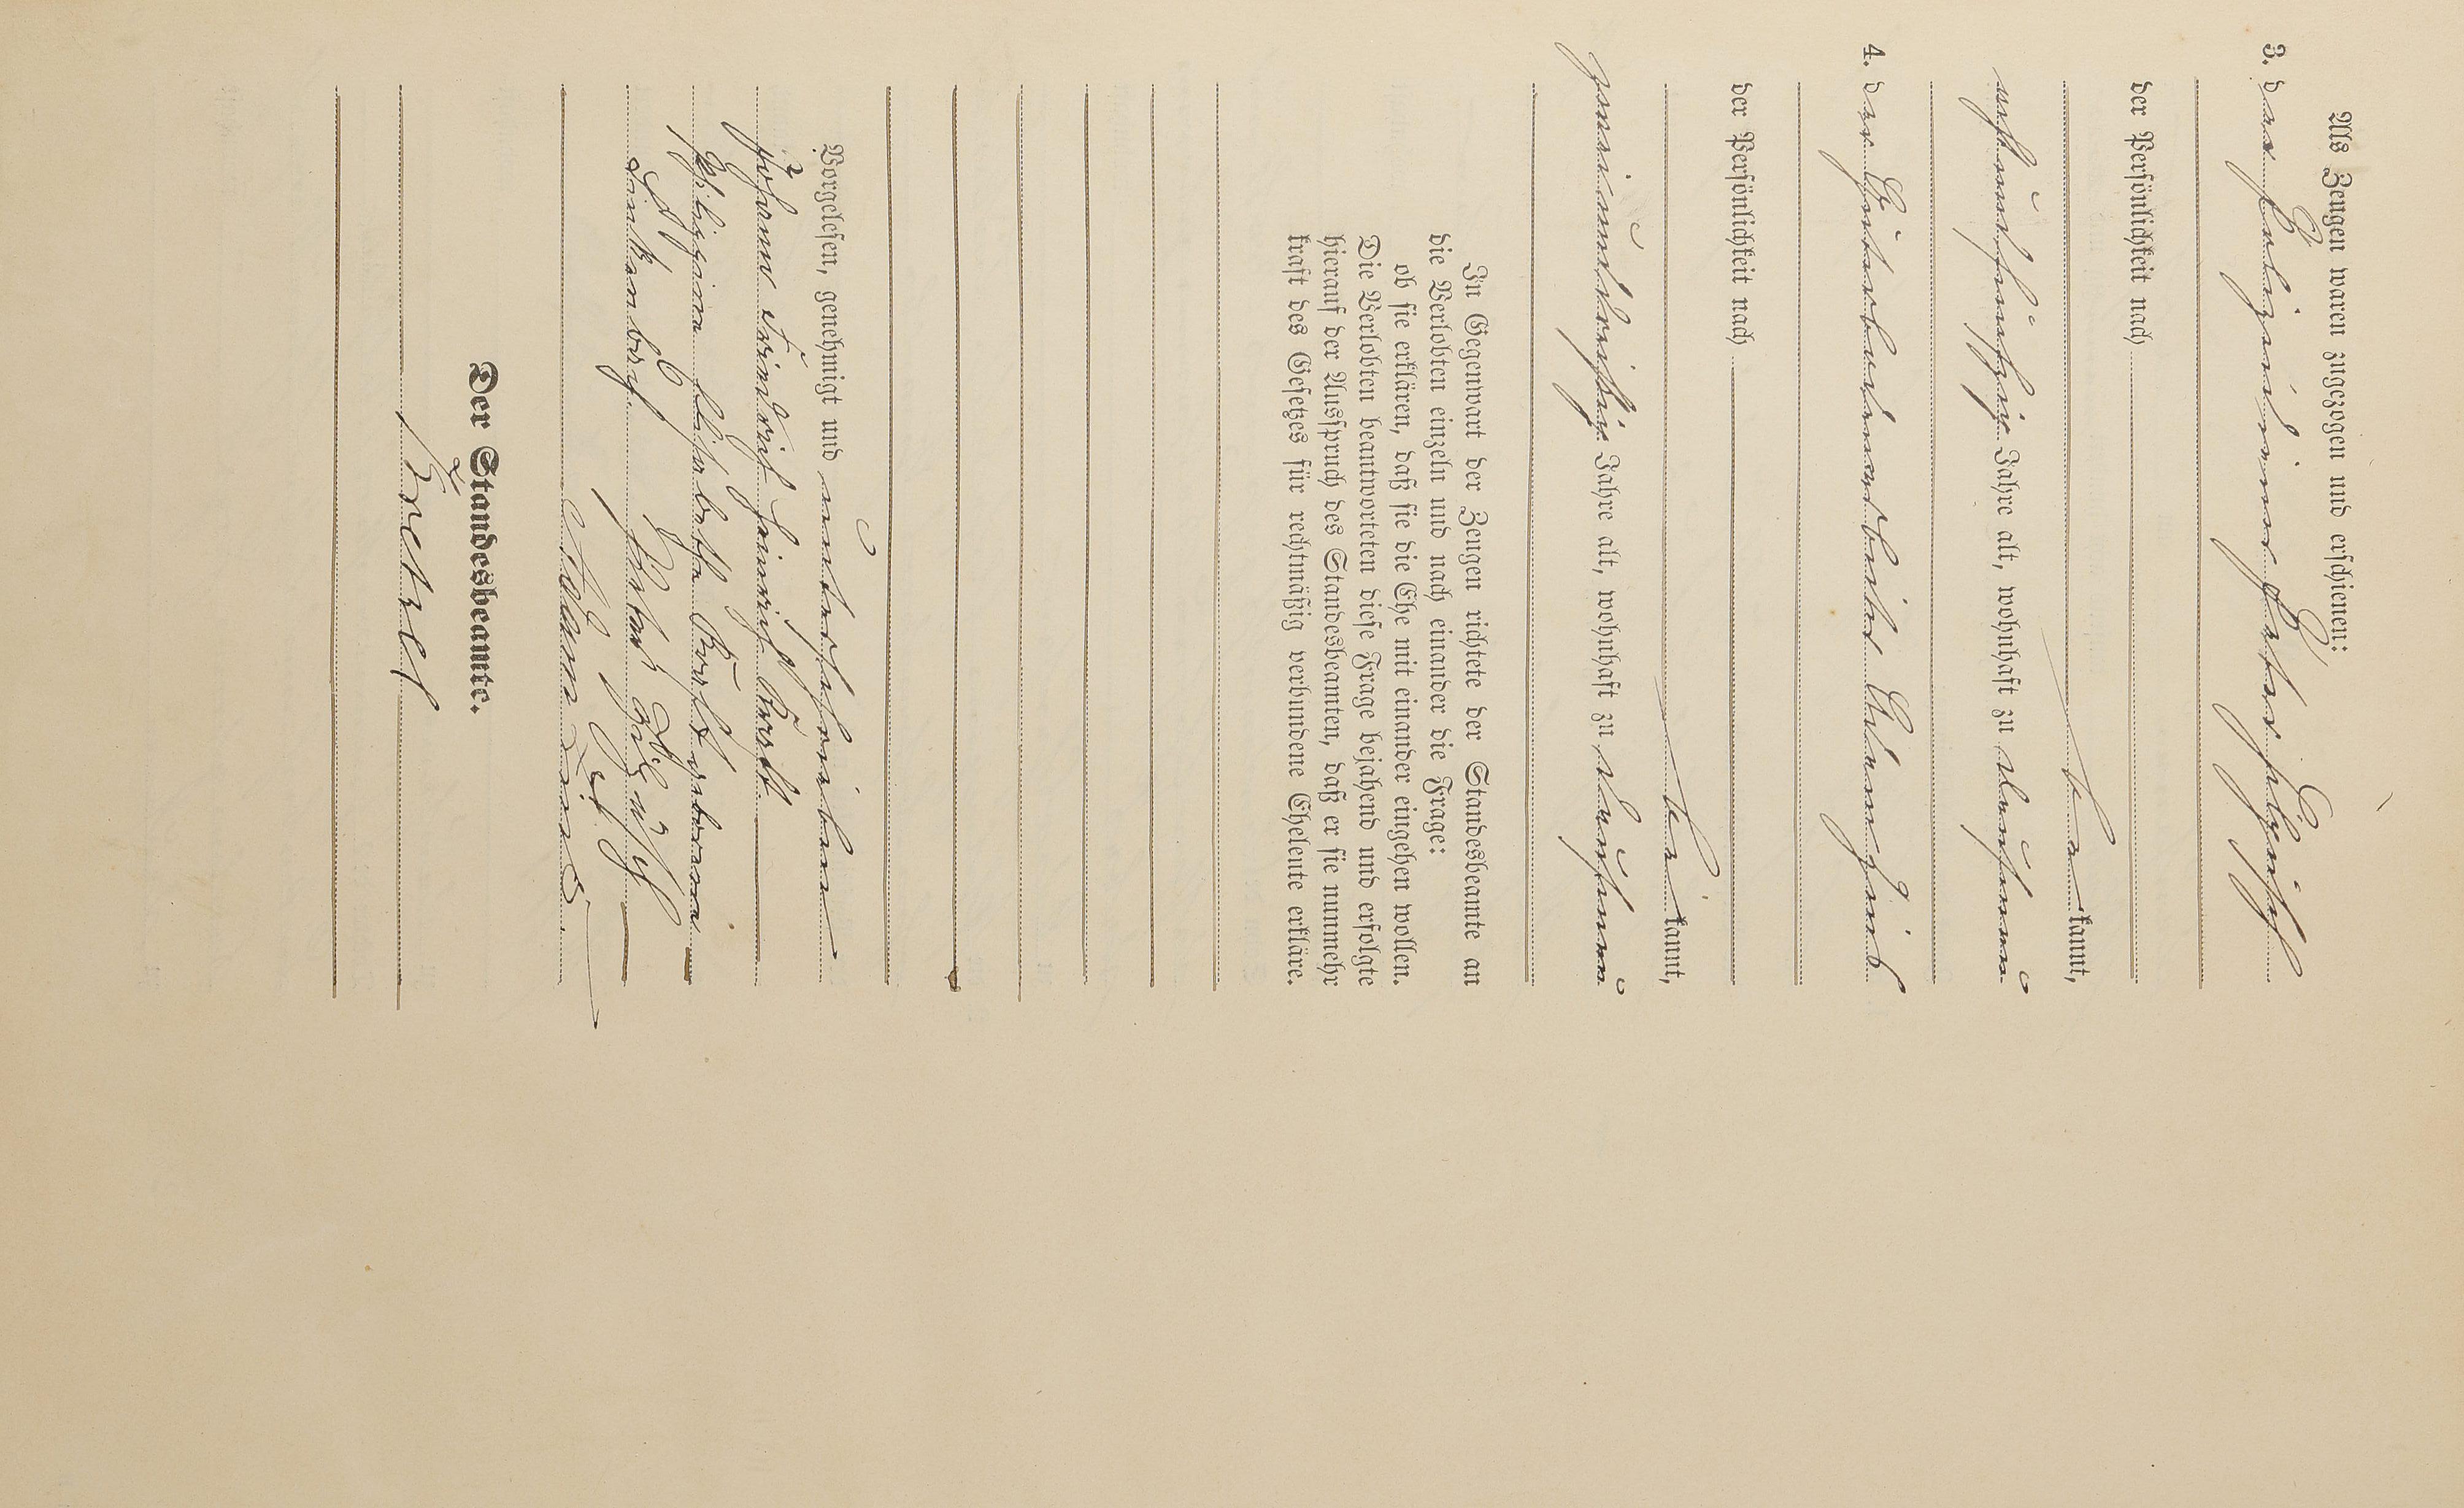 Als Zeugen waren zugezogen und erschienen:
3. der Polizeidiener Peter
der Persönlichkeit nach
be kannt,
achtundfünfzig Jahre alt, wohnhaft zu
4. der Güterbodenarbeiter Adam
der Persönlichkeit nach
be kannt,
zweiunddreißig Jahre alt, wohnhaft zu
In Gegenwart der Zeugen richtete der Standesbeamte an
die Verlobten einzeln und nach einander die Frage:
ob sie erklären, daß sie die Ehe mit einander eingehen wollen.
Die Verlobten beantworteten diese Frage bejahend und erfolgte
hierauf der Ausspruch des Standesbeamten, daß er sie nunmehr
kraft des Gesetzes für rechtmäßig verbundene Eheleute erkläre.
Vorgelesen, genehmigt und unterschrieben
Johann Friedrich Heinrich
Philippine Elisabethe geborene
Peter
Adam
Der Standesbeamte.